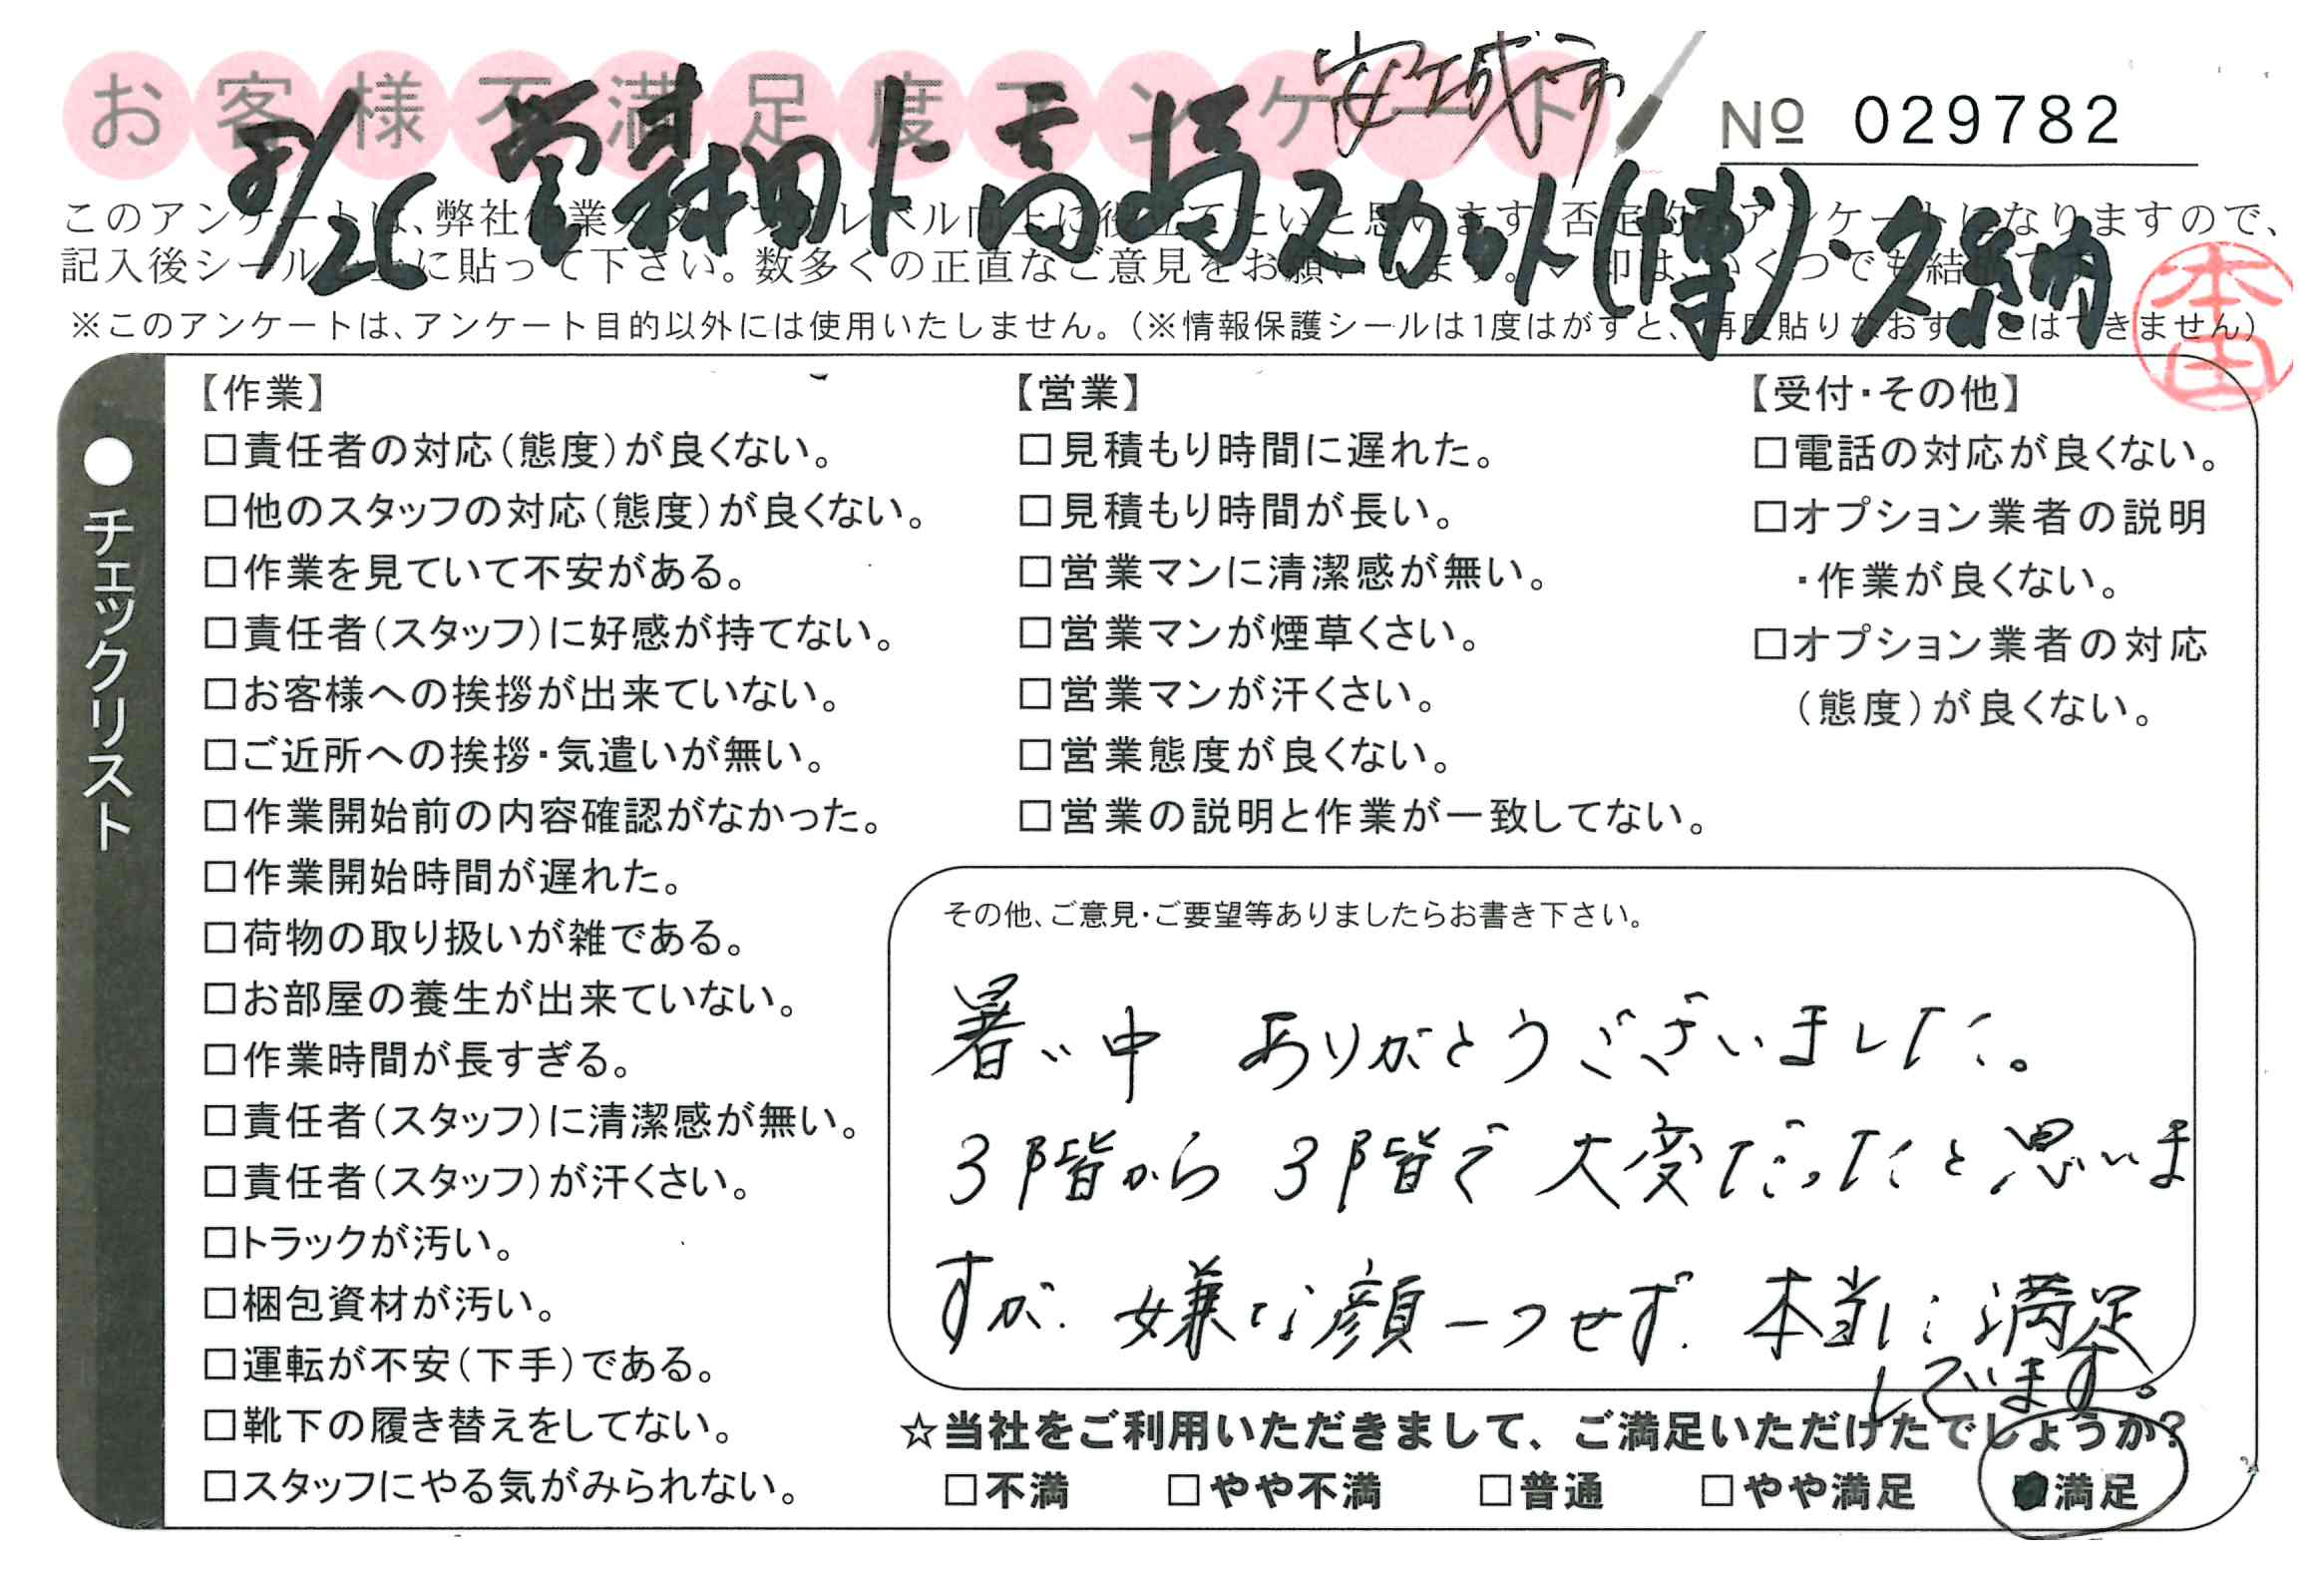 お客様不満足度アンケート
安城市
№ 029782
8/26 営業 高嶋 スカット(博)・久納
このアンケートは、弊社作業スタッフのレベル向上に役立てたいと思います。否定的なアンケートになりますので、
記入後シールを上に貼って下さい。数多くの正直なご意見をお願いします。✓印は、いくつでも結構です。
※このアンケートは、アンケート目的以外には使用いたしません。(※情報保護シールは1度はがすと、再度貼りなおすことはできません)
本田
●チェックリスト
【作業】
□責任者の対応(態度)が良くない。
□他のスタッフの対応(態度)が良くない。
□作業を見ていて不安がある。
□責任者(スタッフ)に好感が持てない。
□お客様への挨拶が出来ていない。
□ご近所への挨拶・気遣いが無い。
□作業開始前の内容確認がなかった。
□作業開始時間が遅れた。
□荷物の取り扱いが雑である。
□お部屋の養生が出来ていない。
□作業時間が長すぎる。
□責任者(スタッフ)に清潔感が無い。
□責任者(スタッフ)が汗くさい。
□トラックが汚い。
□梱包資材が汚い。
□運転が不安(下手)である。
□靴下の履き替えをしてない。
□スタッフにやる気がみられない。
【営業】
□見積もり時間に遅れた。
□見積もり時間が長い。
□営業マンに清潔感が無い。
□営業マンが煙草くさい。
□営業マンが汗くさい。
□営業態度が良くない。
□営業の説明と作業が一致してない。
【受付・その他】
□電話の対応が良くない。
□オプション業者の説明
・作業が良くない。
□オプション業者の対応
(態度)が良くない。
その他、ご意見・ご要望等ありましたらお書き下さい。
暑い中 ありがとうございました。
3階から 3階で 大変だったと思いま
すが、嫌な顔一つせず、本当に満足
しています。
☆当社をご利用いただきまして、ご満足いただけたでしょうか?
□不満 □やや不満 □普通 □やや満足 ■満足